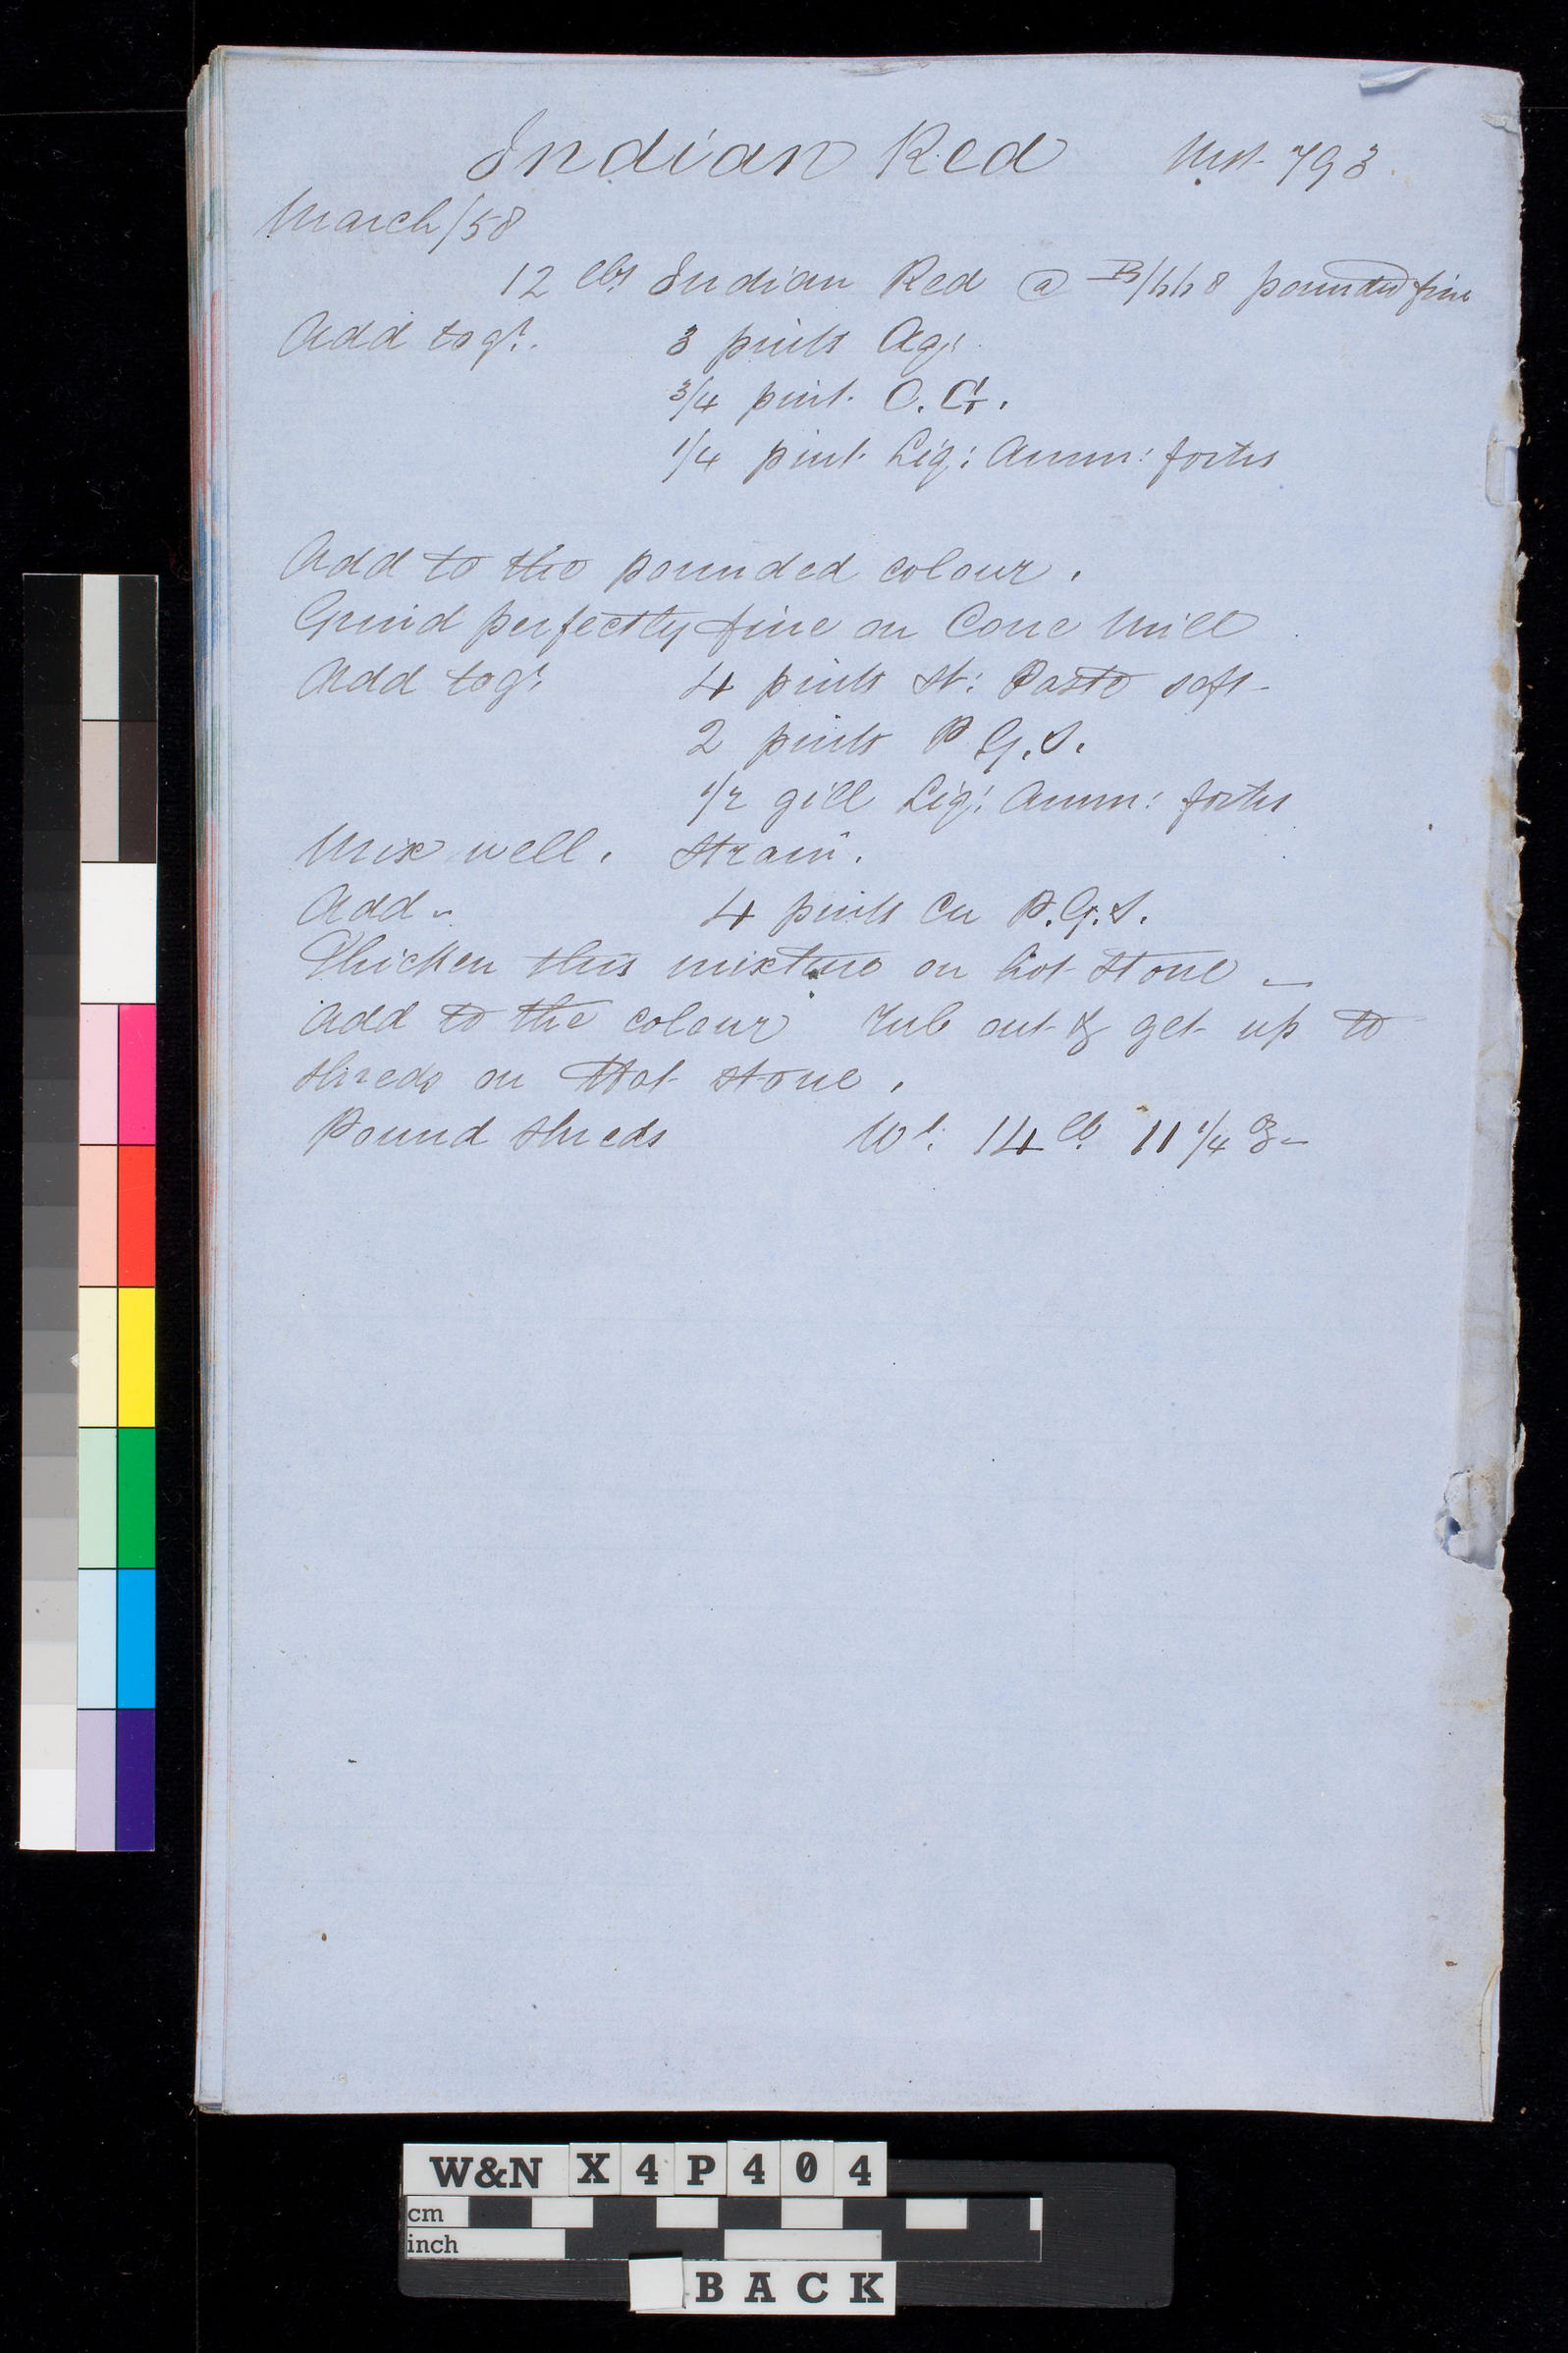 Indian Red Mst. 793.
March/58
12 lbs Indian Red @ B/hh8 pounded fine
Add togr. 3 pints Aq:
3/4 pint. O.G.
1/4 pint Liq: Amm: fortis
Add to the pounded colour.
Grind perfectly fine on Cone Mill
Add togr 4 pints St: Paste soft
2 pints P G.S.
1/2 gill Liq: Amm: fortis
Mix well. Strain.
Add - 4 pints Cn P.G.S.
Thicken this mixture on hot stone -
Add to the colour rub out & get up to
shreds on Hot stone.
Pound shreds Wt: 14 lb 11 1/4 oz -
W&N X4P404
cm
inch
BACK